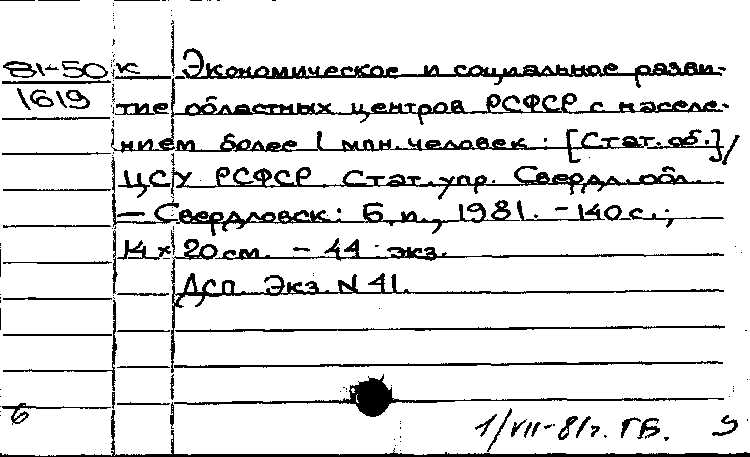 81-50 к Экономическое и социальное разви-
1619 тие областных центров РСФСР с населе-
нием более 1 млн. человек: [Стат. сб.]/
ЦСУ РСФСР. Стат. упр. Свердл. обл.
— Свердловск: Б. и., 1981. - 140 с.;
14 × 20 см. - 44 экз.
Дсп. Экз. N 41.
6 1/VII-81г. ГБ.